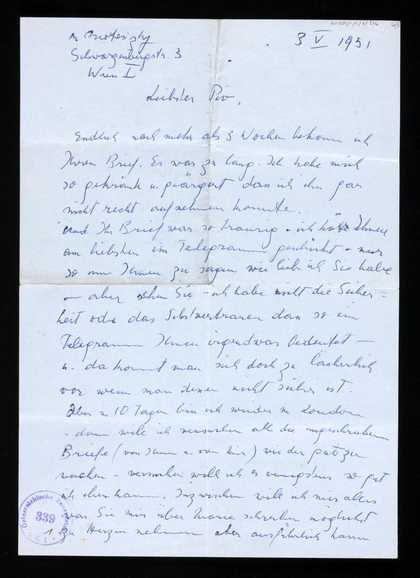 3 V 1951
Schwarzenbergstr. 3
Wien I
Liebster Piv,
Endlich nach mehr als 3 Wochen bekomme ich
Ihren Brief. Es war zu lang. Ich habe mich
so gekränkt u. geärgert dass ich ihn gar
nicht recht aufnehmen konnte.
und Ihr Brief war so traurig - ich hätte Ihnen
am liebsten ein Telegramm geschickt - nur
so um Ihnen zu sagen wie lieb ich Sie habe
- aber sehen Sie - ich habe nicht die Sicher-
heit oder das Selbstvertrauen dass so ein
Telegramm Ihnen irgendwas bedeutet -
u. da kommt man sich doch zu lächerlich
vor wenn man dessen nicht sicher ist.
In 10 Tagen bin ich wieder in London
- dann will ich versuchen all die ungeschriebenen
Briefe (von dann u. von hier)
machen - versuchen will ich es wenigstens so gut
ich eben kann. Inzwischen will ich mir alles
was Sie mir über Marie schreiben möglichst
zu Herzen nehmen aber ausführlich kann
339